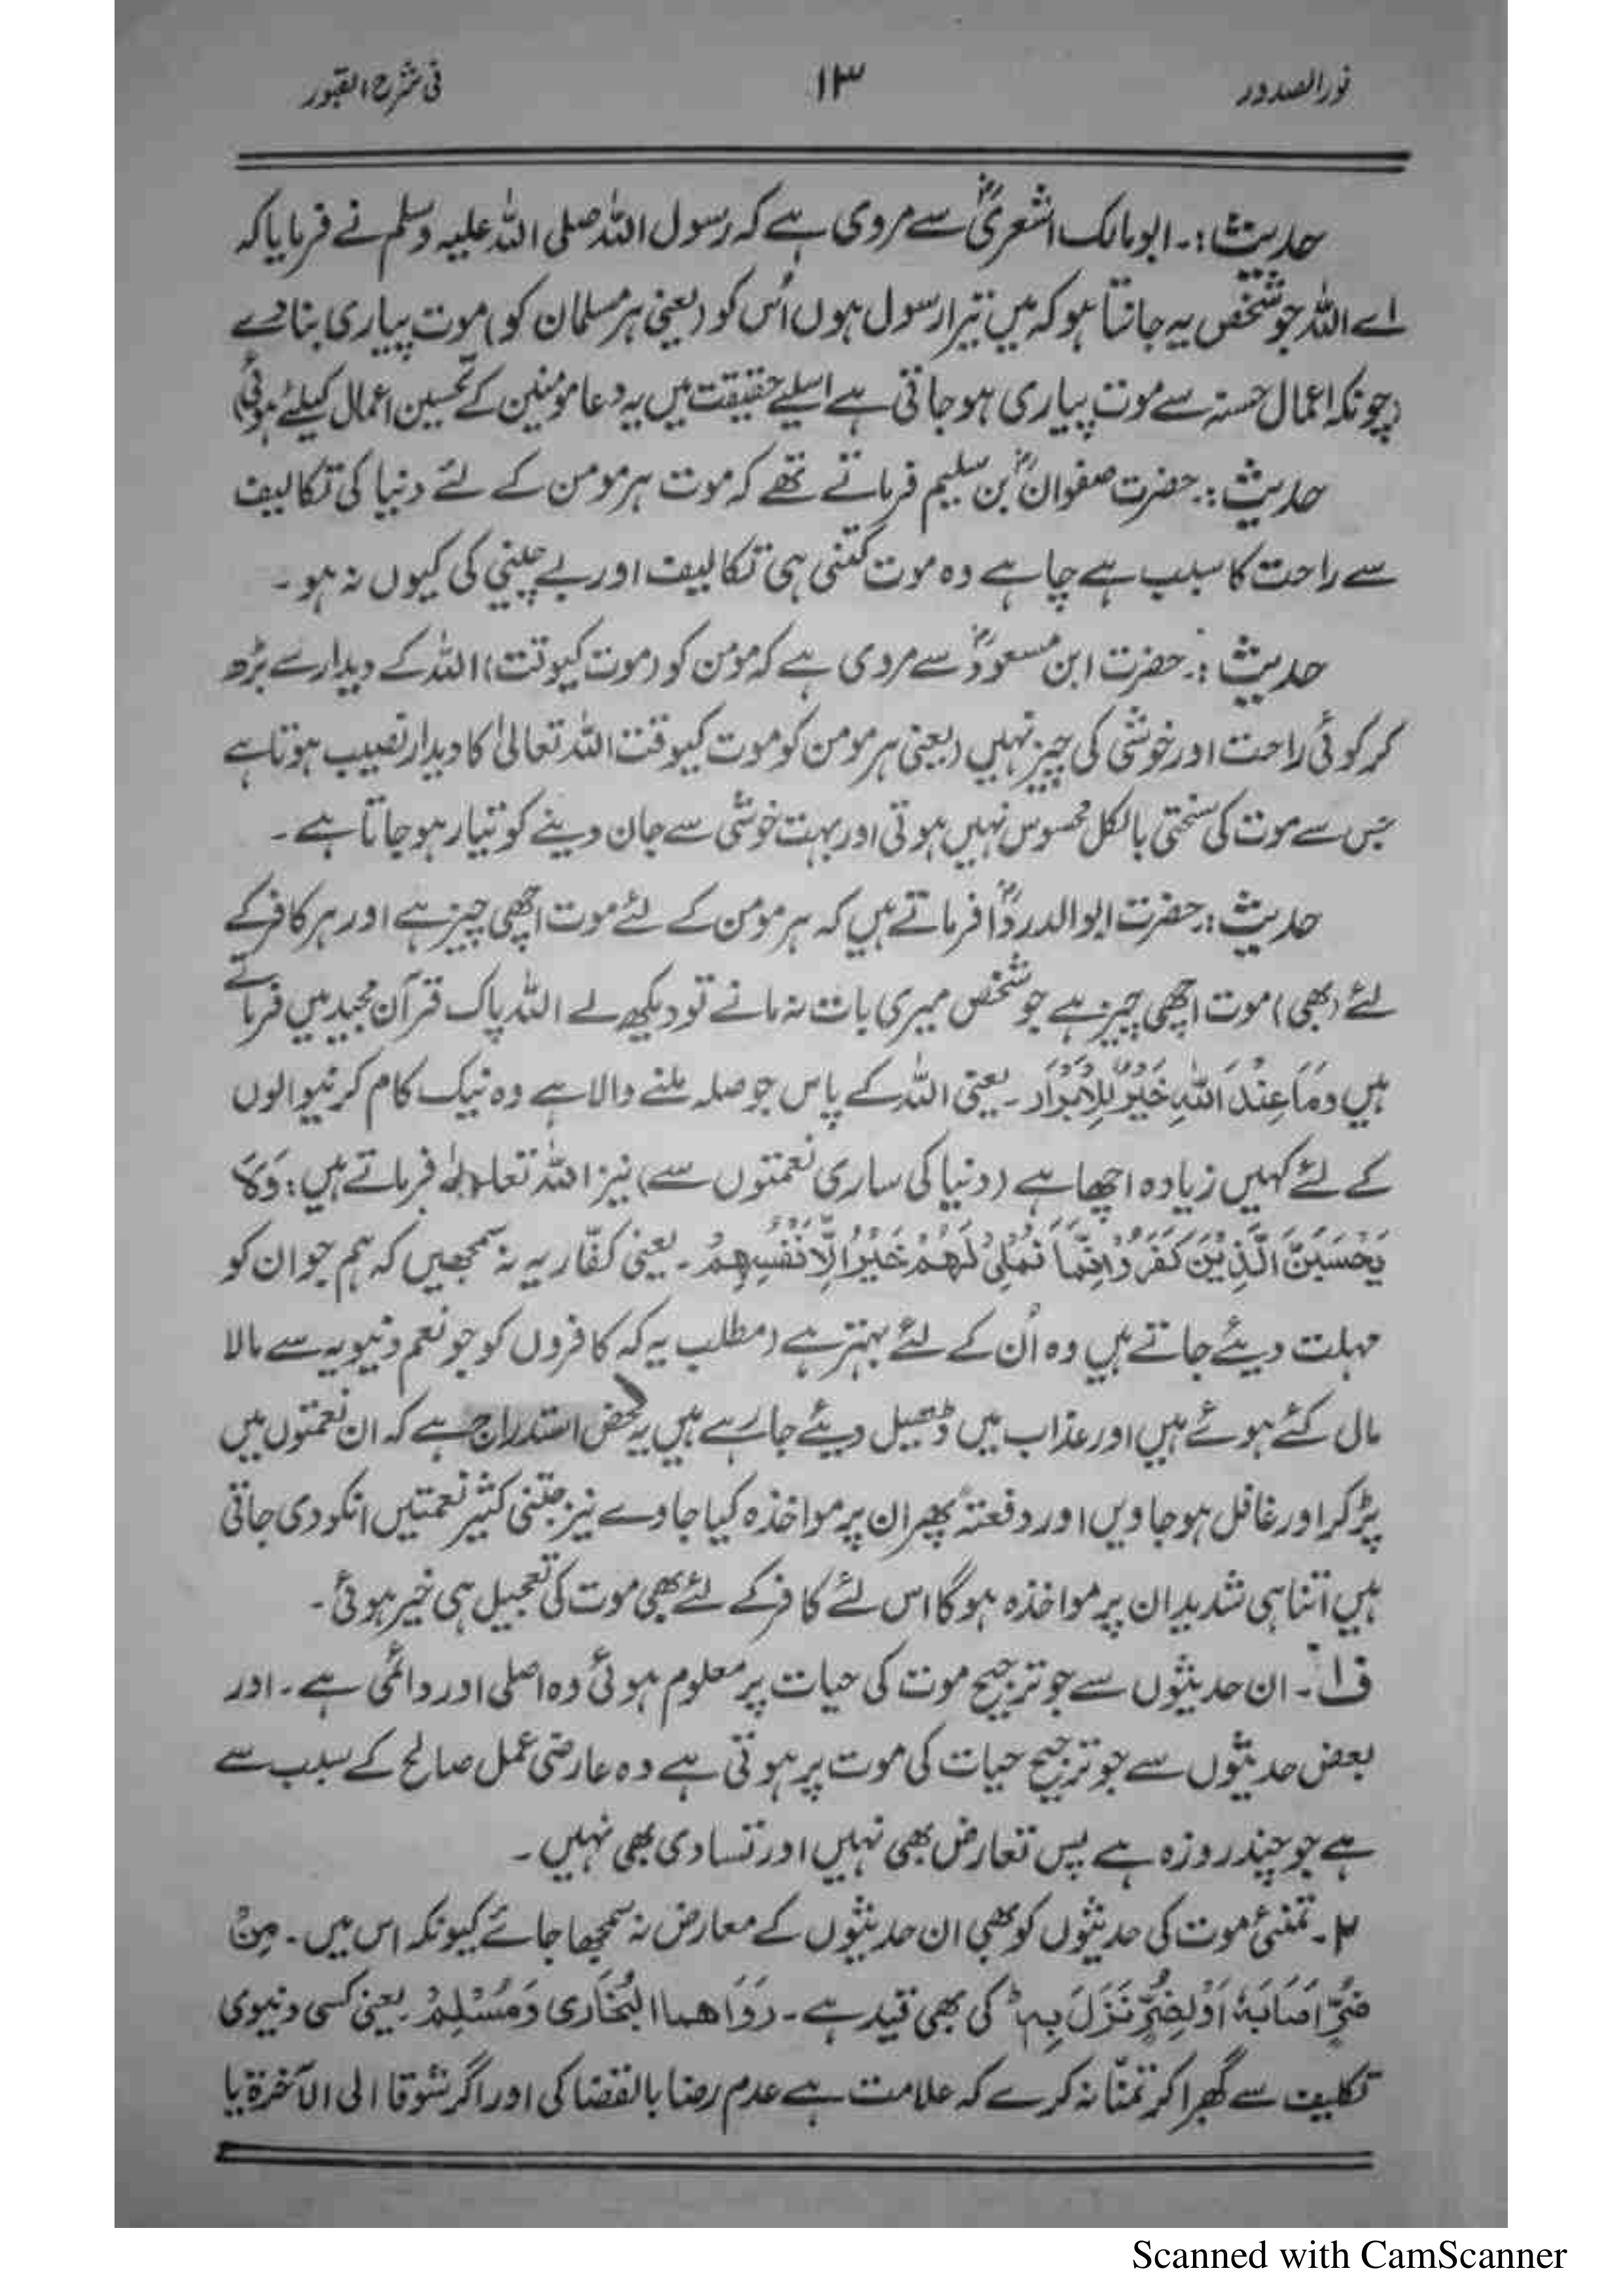 نورالصدور ۱۳ فی شرح القبور
حدیث:۔ ابو مالک اشعریؓ سے مروی ہے کہ رسول اللہ صلی اللہ علیہ وسلم نے فرمایا کہ
اے اللہ جو شخص یہ جانتا ہو کہ میں تیرا رسول ہوں اُس کو (یعنی ہر مسلمان کو) موت پیاری بنا دے
(چونکہ اعمال حسنہ سے موت پیاری ہو جاتی ہے اسلیے حقیقت میں یہ دعا مومنین کے تحسین اعمال کیلئے ہوئی)
حدیث:۔ حضرت صفوانؓ بن سلیم فرماتے تھے کہ موت ہر مومن کے لئے دنیا کی تکالیف
سے راحت کا سبب ہے چاہے وہ موت کتنی ہی تکالیف اور بے چینی کی کیوں نہ ہو۔
حدیث:۔ حضرت ابن مسعودؓ سے مروی ہے کہ مومن کو (موت کیوقت) اللہ کے دیدار سے بڑھ
کر کوئی راحت اور خوشی کی چیز نہیں (یعنی ہر مومن کو موت کیوقت اللہ تعالیٰ کا دیدار نصیب ہوتا ہے
جس سے موت کی سختی بالکل محسوس نہیں ہوتی اور بہت خوشی سے جان دینے کو تیار ہو جاتا ہے۔
حدیث:۔ حضرت ابو الدرداؓ فرماتے ہیں کہ ہر مومن کے لئے موت اچھی چیز ہے اور ہر کافر کے
لئے (بھی) موت اچھی چیز ہے جو شخص میری بات نہ مانے تو دیکھ لے اللہ پاک قرآن مجید میں فرماتے
ہیں وَمَا عِنْدَ اللّٰهِ خَيْرٌ لِّلْاَبْرَار۔ یعنی اللہ کے پاس جو صلہ ملنے والا ہے وہ نیک کام کرنیوالوں
کے لئے کہیں زیادہ اچھا ہے (دنیا کی ساری نعمتوں سے) نیز اللہ تعالےٰ فرماتے ہیں: وَلَا
يَحْسَبَنَّ الَّذِيْنَ كَفَرُوْا اَنَّمَا نُمْلِیْ لَهُمْ خَيْرٌ لِّاَنْفُسِهِمْ۔ یعنی کفّار یہ نہ سمجھیں کہ ہم جو ان کو
مہلت دیئے جاتے ہیں وہ اُن کے لئے بہتر ہے (مطلب یہ کہ کافروں کو جو نعم دنیویہ سے مالا
مال کئے ہوئے ہیں اور عذاب میں ڈھیل دیئے جا رہے ہیں یہ محض استدراج ہے کہ ان نعمتوں میں
پڑ کر اور غافل ہو جاویں اور دفعتہً پھر ان پر مواخذہ کیا جاوے نیز جتنی کثیر نعمتیں انکو دی جاتی
ہیں اتنا ہی شدید ان پر مواخذہ ہوگا اس لئے کافر کے لئے بھی موت کی تعجیل ہی خیر ہوئی۔
ف۱۔ ان حدیثوں سے جو ترجیح موت کی حیات پر معلوم ہوئی وہ اصلی اور دائمی ہے۔ اور
بعض حدیثوں سے جو ترجیح حیات کی موت پر ہوتی ہے وہ عارضی عمل صالح کے سبب سے
ہے جو چند روزہ ہے پس تعارض بھی نہیں اور تساوی بھی نہیں۔
۲۔ تمنیٔ موت کی حدیثوں کو بھی ان حدیثوں کے معارض نہ سمجھا جائے کیونکہ اس میں۔ مِنْ
ضُرٍّ اَصَابَهٗ اَوْ لِضُرٍّ نَزَلَ بِهٖ کی بھی قید ہے۔ رَوَاهما الْبُخَاری وَمُسْلِمْ۔ یعنی کسی دنیوی
تکلیف سے گھبرا کر تمنّا نہ کرے کہ علامت ہے عدم رضا بالقضا کی اور اگر شوقا الی الآخرۃ یا
Scanned with CamScanner